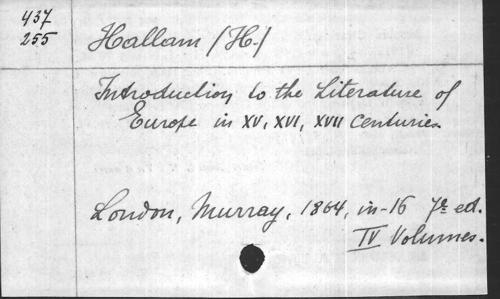 437
255
Hallam (H.)
Introduction to the Literature of
Europe in XV, XVI, XVII Centuries.
London, Murray, 1864, in-16 7e ed.
IV Volumes.